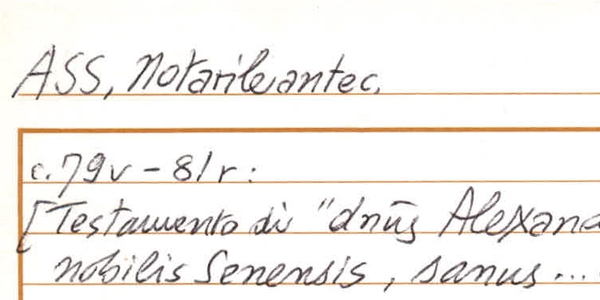 ASS, Notarile antec.
c. 79v - 81r:
[Testamento di "dnūs Alexand
nobilis Senensis, sanus...